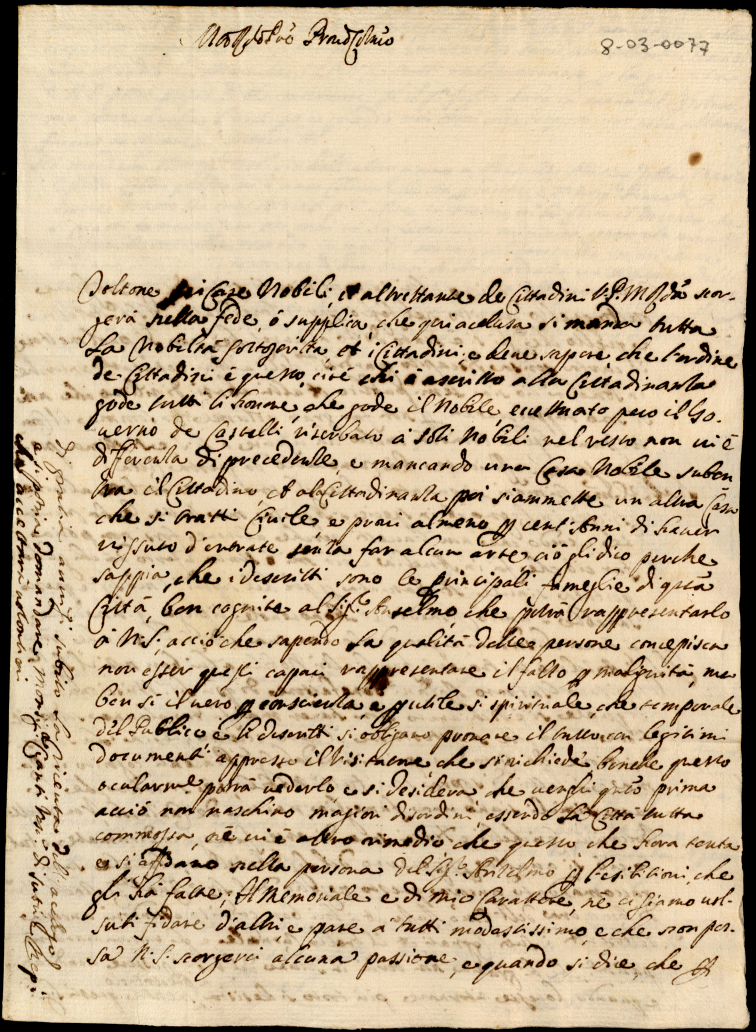 8-03-0077
Case Nobili, et altrettante de Cittadini V.P. M. scor-
gerà nella fede, ò supplica, che qui acclusa si manda tutta
La Nobiltà sottoscritta, et i Cittadini, e deve sapere che l'ordine
de Cittadini è questo, cioè chi è ascritto alla Cittadinanza
gode tutti li honori, che gode il Nobile eccettuato però il Go-
verno de Castelli riserbato à soli Nobili nel resto non vi è
differenza di precedenze, e mancando una Casa Nobile suben
tra il Cittadino et alla Cittadinanza poi si ammette un altra Casa
che si tratti Civile e provi almeno p cent'Anni di haver
vissuto d'entrate senza far alcun arte, ciò gli dico perche
sappia, che i descritti sono le principali fameglie di questa
Città, ben cognite al Sig. Anselmo che potrà rappresentarlo
à N.S., acciò che sapendo la qualità delle persone concepisca
non esser questi capaci rappresentare il falso p malignità, ma
ben sì il vero p conscienza, e p utile sì spirituale, che temporale
del Publico e li descritti si obligano provare il tutto con legitimi
documenti appresso il Visitatore che si richiede benche questo
ocularme. potrà vederlo e si desidera che venghi quanto prima
acciò non naschino magiori disordini essendo la Città tutta
commossa, nè vi è altro rimedio che questo che hora tenta
e si affidano nella persona del Sig. Anselmo p l'esibitioni, che
gli hà fatte; Il Memoriale e di mio Carattere, nè ci siamo vol-
suti fidare d'altri, e pare à tutti modestissimo, e che non pos-
sa N.S. scorgerci alcuna passione, e quando si dice, che
di gratia avvisi subito la ricevuta dell'acclusa